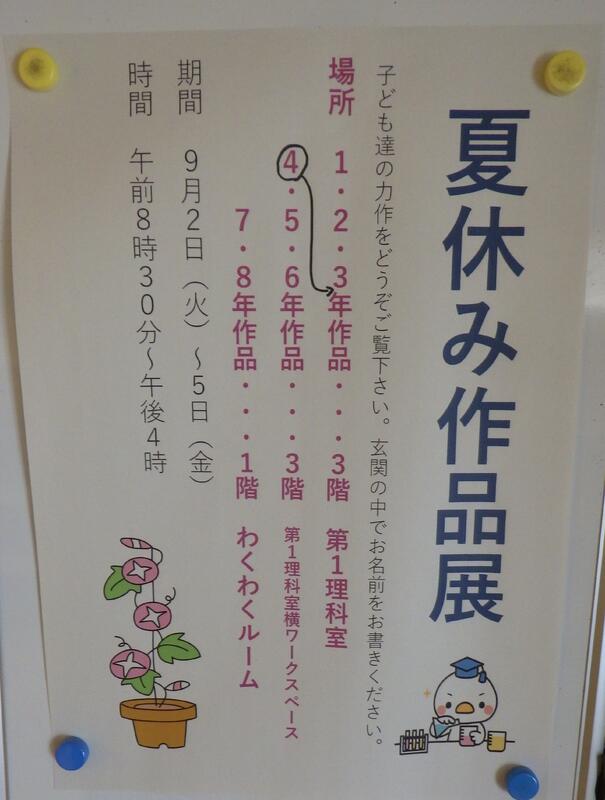 夏休み作品展
子ども達の力作をどうぞご覧下さい。玄関の中でお名前をお書きください。
場所　1・2・3年作品・・・3階　第1理科室
4・5・6年作品・・・3階　第1理科室横ワークスペース
7・8年作品・・・1階　わくわくルーム
期間　9月2日（火）～5日（金）
時間　午前8時30分～午後4時